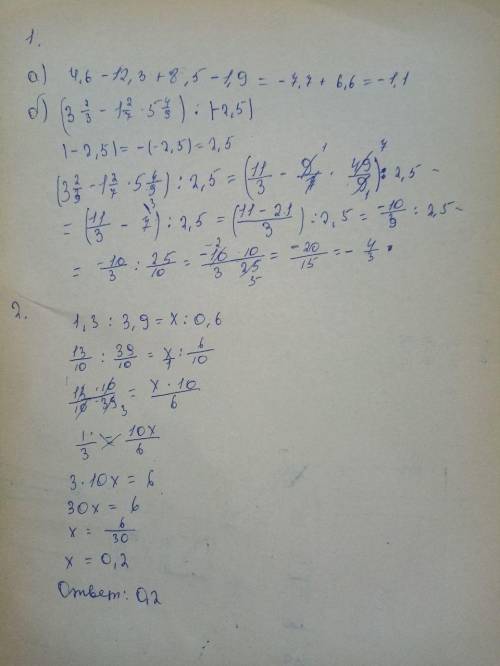 1.
а) 4,6 - 12,3 + 8,5 - 1,9 = -7,7 + 6,6 = -1,1
б) (3 2/3 - 1 2/7 · 5 4/9) : |-2,5|
|-2,5| = -(-2,5) = 2,5
(3 2/3 - 1 2/7 · 5 4/9) : 2,5 = (11/3 - 9/7 · 49/9) : 2,5 =
= (11/3 - 7) : 2,5 = (11-21/3) : 2,5 = -10/3 : 2,5 =
= -10/3 : 25/10 = -10·10/3·25 = -20/15 = -4/3.
2.
1,3 : 3,9 = x : 0,6
13/10 : 39/10 = x/1 : 6/10
13·10/10·39 = x·10/6
1/3 = 10x/6
3·10x = 6
30x = 6
x = 6/30
x = 0,2
Ответ: 0,2